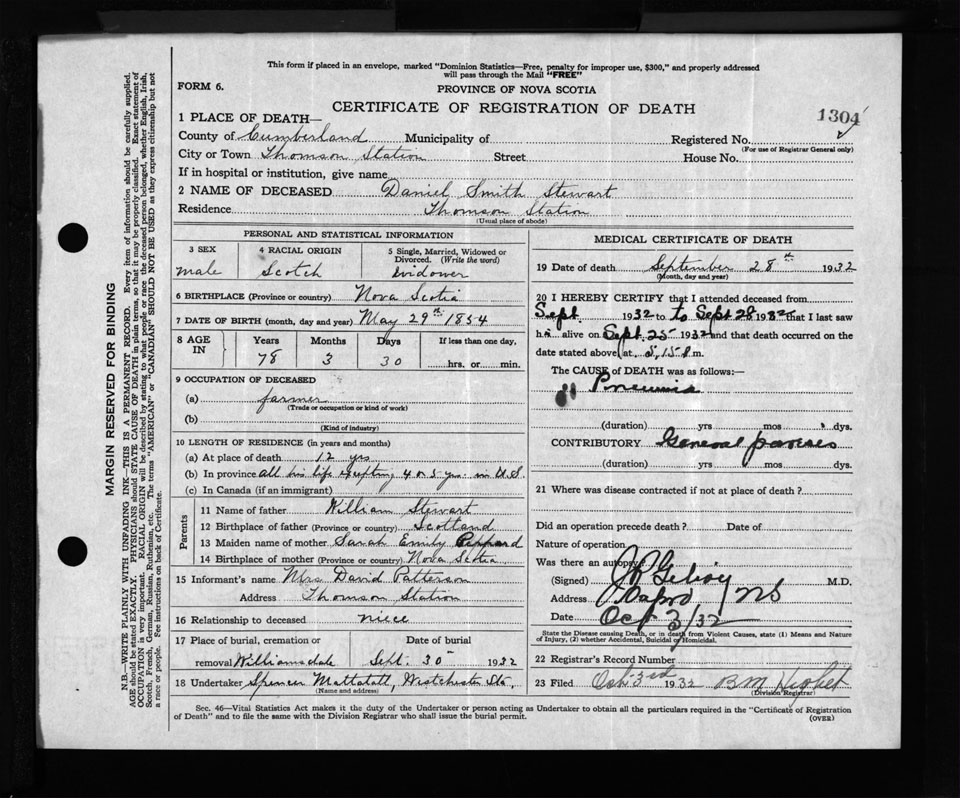 This form if placed in an envelope, marked "Dominion Statistics—Free, penalty for improper use, $300," and properly addressed
will pass through the Mail "FREE"
FORM 6.
PROVINCE OF NOVA SCOTIA
CERTIFICATE OF REGISTRATION OF DEATH
1304
1 PLACE OF DEATH—
County of Cumberland Municipality of Registered No.
(For use of Registrar General only)
City or Town Thomson Station Street House No.
If in hospital or institution, give name
2 NAME OF DECEASED Daniel Smith Stewart
Residence Thomson Station
(Usual place of abode)
PERSONAL AND STATISTICAL INFORMATION
3 SEX 4 RACIAL ORIGIN 5 Single, Married, Widowed or
Divorced. (Write the word)
male Scotch widower
6 BIRTHPLACE (Province or country) Nova Scotia
7 DATE OF BIRTH (month, day and year) May 29th 1854
8 AGE IN Years Months Days If less than one day,
78 3 30 hrs. or min.
9 OCCUPATION OF DECEASED
(a) farmer
(Trade or occupation or kind of work)
(b)
(Kind of industry)
10 LENGTH OF RESIDENCE (in years and months)
(a) At place of death 12 yrs
(b) In province all his life excepting 4 or 5 yrs. in U.S.
(c) In Canada (if an immigrant)
Parents
11 Name of father William Stewart
12 Birthplace of father (Province or country) Scotland
13 Maiden name of mother Sarah Emily Peppard
14 Birthplace of mother (Province or country) Nova Scotia
15 Informant's name Mrs David Patterson
Address Thomson Station
16 Relationship to deceased niece
17 Place of burial, cremation or Date of burial
removal Williamsdale Sept. 30 1932
18 Undertaker Spencer Mattatall, Westchester Sta.
(Name and address)
MEDICAL CERTIFICATE OF DEATH
19 Date of death September 28th 1932
(Month, day and year)
20 I HEREBY CERTIFY that I attended deceased from
Sept. 1932 to to Sept 28 1932 that I last saw
h alive on Sept 25 1932 and that death occurred on the
date stated above, at 5.15 P m.
The CAUSE of DEATH was as follows:—
(duration) yrs mos dys.
CONTRIBUTORY General
(duration) yrs. mos. dys.
21 Where was disease contracted if not at place of death?
Did an operation precede death? Date of
Nature of operation
Was there an autopsy?
(Signed) M.D.
Address NS
Date Oct 3/32
State the Disease causing Death, or in death from Violent Causes, state (1) Means and Nature
of Injury, (2) whether Accidental, Suicidal or Homicidal.
22 Registrar's Record Number
23 Filed Oct 3rd 1932 B M
(Division Registrar)
Sec. 46—Vital Statistics Act makes it the duty of the Undertaker or person acting as Undertaker to obtain all the particulars required in the "Certificate of Registration
of Death" and to file the same with the Division Registrar who shall issue the burial permit.
(OVER)
MARGIN RESERVED FOR BINDING
N.B.—WRITE PLAINLY WITH UNFADING INK—THIS IS A PERMANENT RECORD. Every item of information should be carefully supplied.
AGE should be stated EXACTLY. PHYSICIANS should STATE CAUSE OF DEATH in plain terms, so that it may be properly classified. Exact statement of
OCCUPATION is very important. RACIAL ORIGIN will be described by stating to what people or race the deceased person belonged, whether English, Irish,
Scotch, French, German, Russian, Ruthenian, etc. The terms "AMERICAN" or "CANADIAN" SHOULD NOT BE USED as they express citizenship but not
a race or people. Fee instructions on back of Certificate.